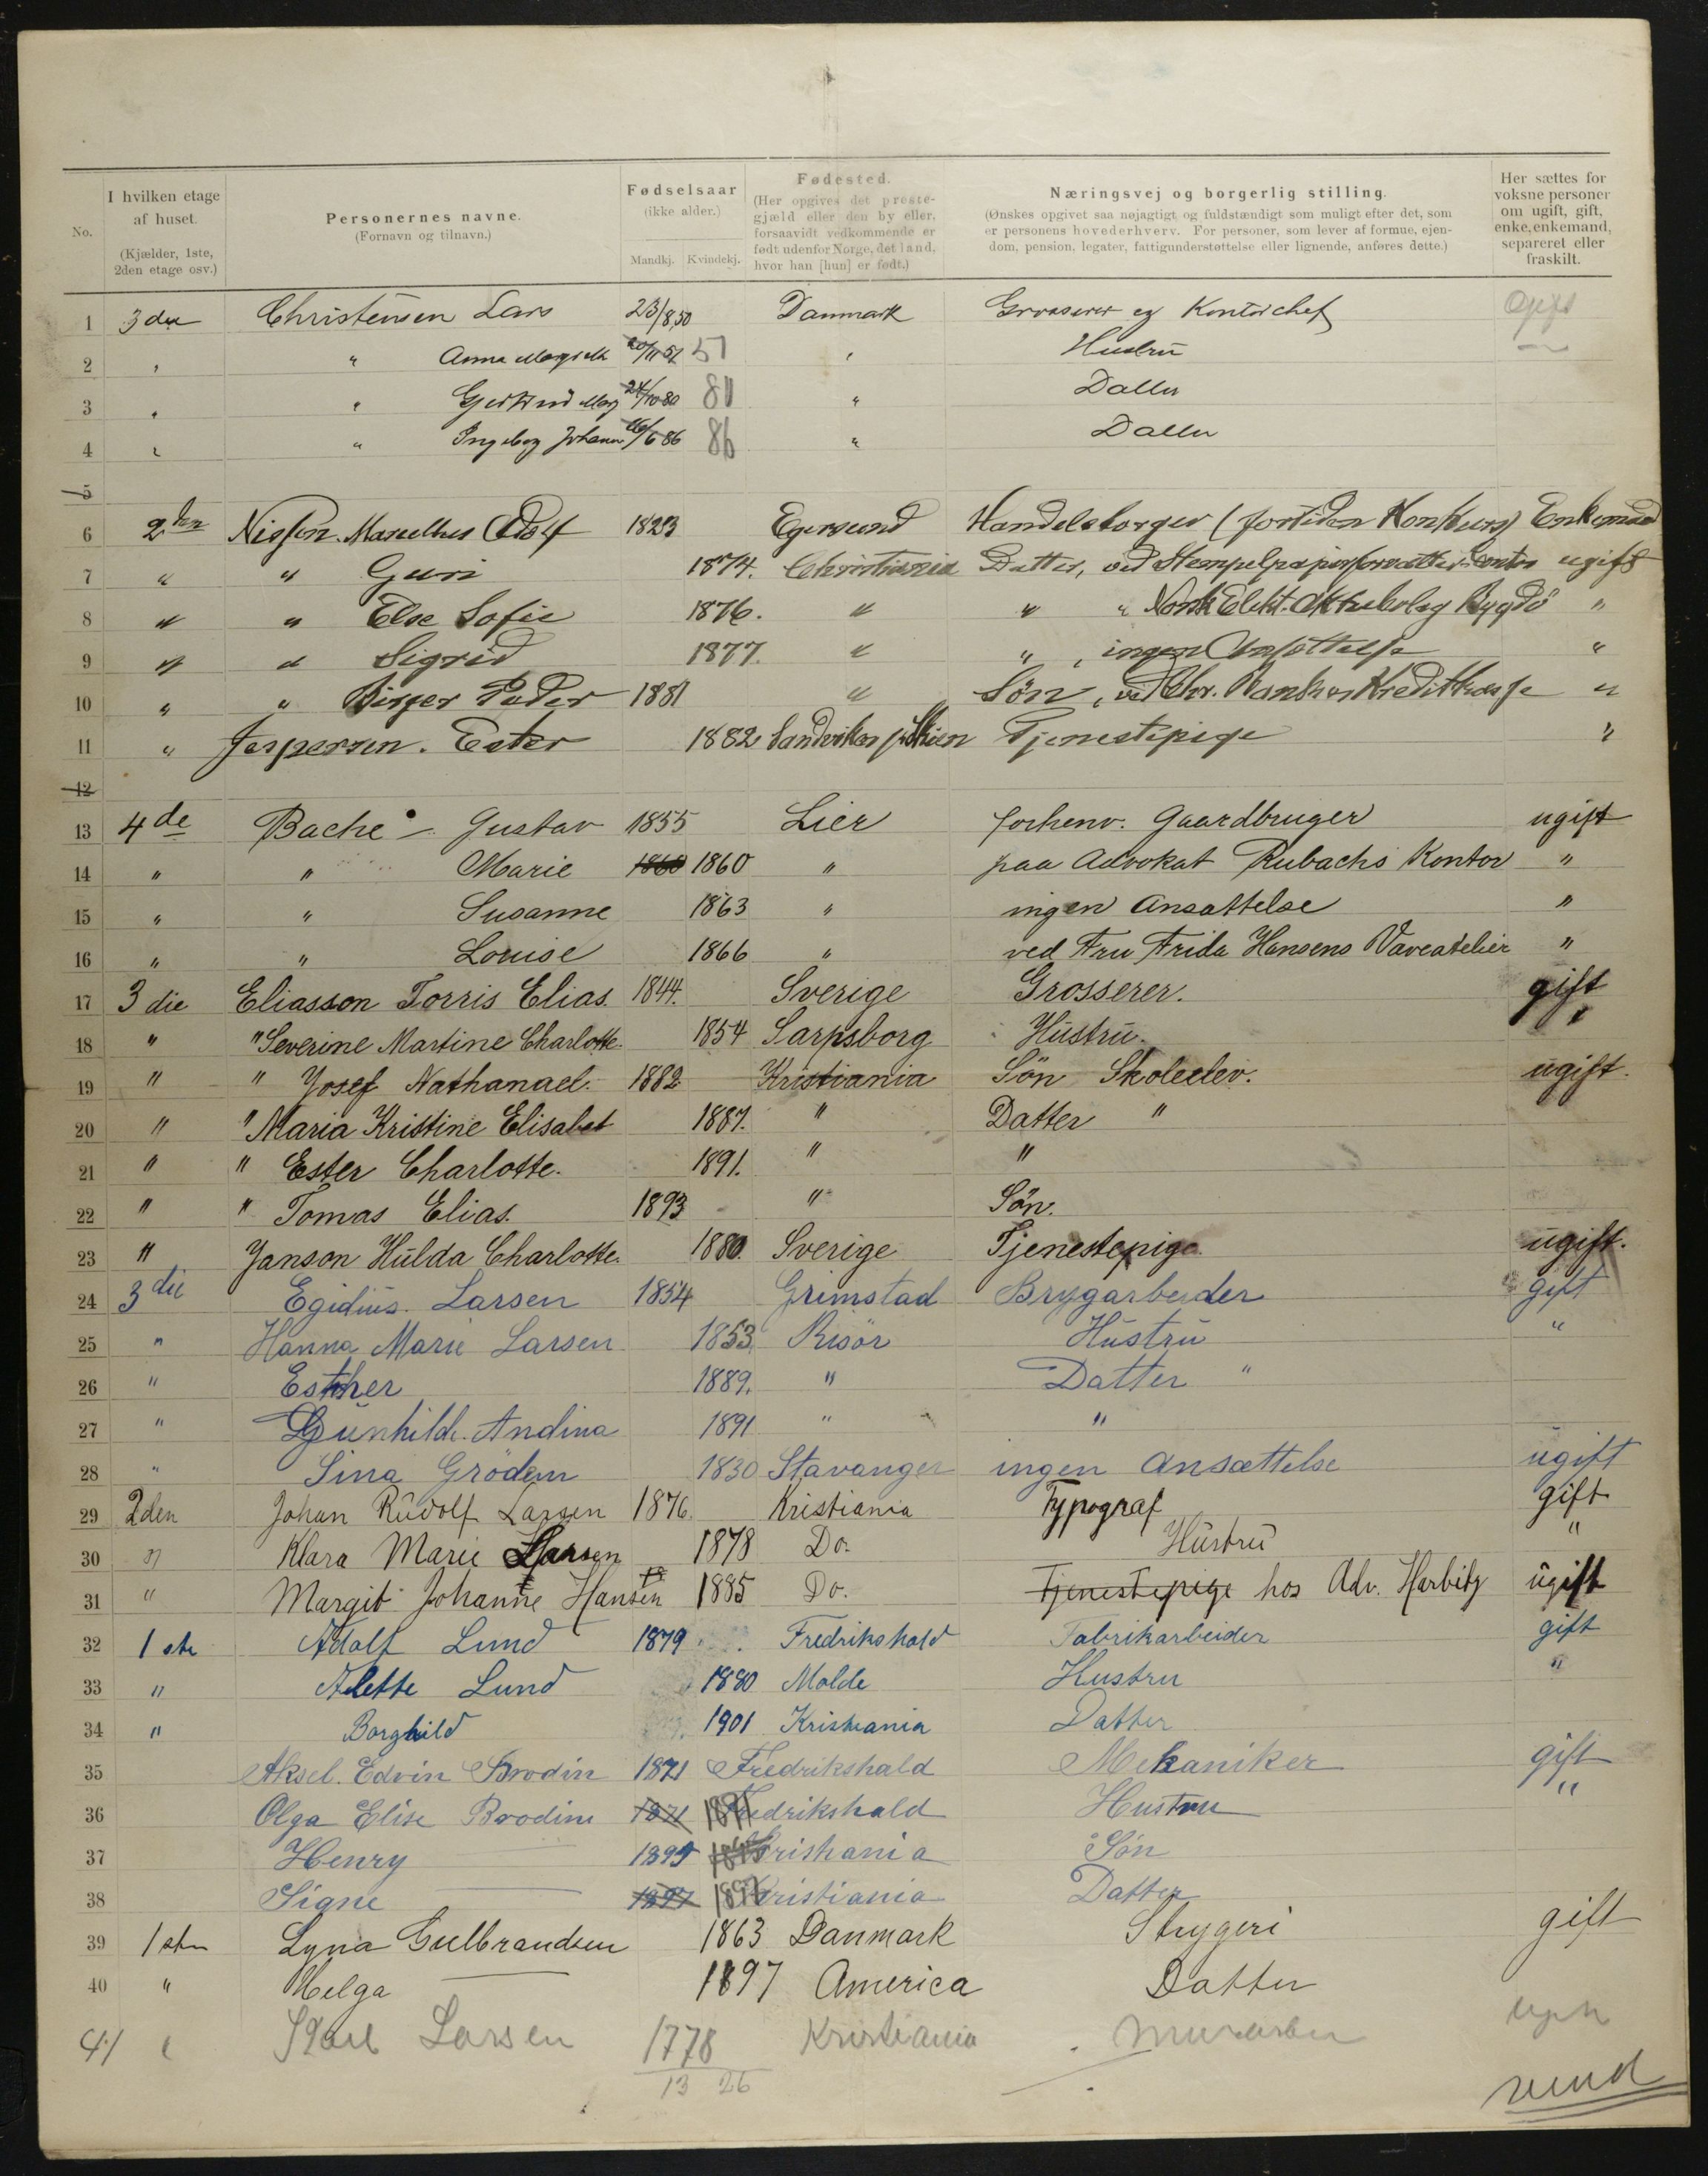 No.
I hvilken etage af huset. (Kjælder, 1ste, 2den etage osv.)
Personernes navne. (Fornavn og tilnavn.)
Fødselsaar (ikke alder.) Mandkj. Kvindekj.
Fødested. (Her opgives det prestegjæld eller den by eller, forsaavidt vedkommende er født udenfor Norge, det land, hvor han [hun] er født.)
Næringsvej og borgerlig stilling. (Ønskes opgivet saa nøjagtigt og fuldstændigt som muligt efter det, som er personens hovederhverv. For personer, som lever af formue, ejendom, pension, legater, fattigunderstøttelse eller lignende, anføres dette.)
Her sættes for voksne personer om ugift, gift, enke, enkemand, separeret eller fraskilt.
1 3die Christensen Lars 23/8 50 Danmark Grosserer og Kontorchef
2 " " Anna 51 " Hustru
3 " " 24/10 80 80 " Datter
4 " " Ingeborg Johanne 16/6 86 86 " Datter
5
6 2den Nissen. Marselius Adolf 1823 Egersund Handelsborger (fortiden Konkurs) Enkemand
7 " " Guri 1874. Christiania Datter, ved Stempelpapirforvalter Kontor ugift
8 " " Else Sofie 1876. " " " Norsk Elekt. Aktiebolag Bygdö "
9 " " Sigrid 1877. " " , ingen Ansættelse "
10 " " Birger Peder 1881 " Sön, ved Chr. Bank og Kreditkasse "
11 " Jespersen. Ester 1882 Sandviken p. Skien Tjenestepige "
12
13 4de Bache Gustav 1855 Lier forhenv. Gaardbruger ugift
14 " " Marie 1860 1860 " paa Advokat Rubachs Kontor "
15 " " Susanne 1863 " ingen Ansattelse "
16 " " Louise 1866 " ved Fru Frida Hansens Vaveatelier "
17 3die Eliasson Torris Elias. 1844. Sverige Grosserer. gift
18 " " Severine Martine Charlotte. 1854 Sarpsborg Hustru. "
19 " " Josef Nathanael. 1882 Kristiania Sön Skoleelev. ugift.
20 " " Maria Kristine Elisabet 1887. " Datter "
21 " " Ester Charlotte. 1891. " "
22 " " Tomas Elias. 1893 " Sön.
23 " Janson Hulda Charlotte. 1880. Sverige Tjenestepige ugift.
24 3die Egidius. Larsen 1854 Grimstad Brygarbeider gift
25 " Hanna Marie Larsen 1853. Risör Hustru "
26 " Esther 1889. " Datter "
27 " Gunhild. Andina 1891 " "
28 " Sina Grödem 1830 Stavanger ingen Ansættelse ugift
29 2den Johan Rudolf Larsen 1876. Kristiania Typograf gift
30 " Klara Marie Larsen 1878 Do. Hustru "
31 " Margit Johanne Hansen 1885 Do. Tjenestepige hos Adv. Harbitz ugift
32 1ste Adolf Lund 1879 Fredrikshald Fabrikarbeider gift
33 " Alette Lund 1880 Molde Hustru "
34 " Borghild 1901 Kristiania Datter
35 Aksel. Edvin Brodin 1871 Fredrikshald Mekaniker gift
36 Olga Elise Brodin 1871 1871 Fredrikshald Hustru "
37 Henry 1895 Kristiania Sön
38 Signe 1897 1897 Kristiania Datter
39 1ste Lyna Gulbrandsen 1863 Danmark Strygeri gift
40 " Helga 1897 America Datter
41 " Karl Larsen 1778 Kristiania ugift
13 26
vend